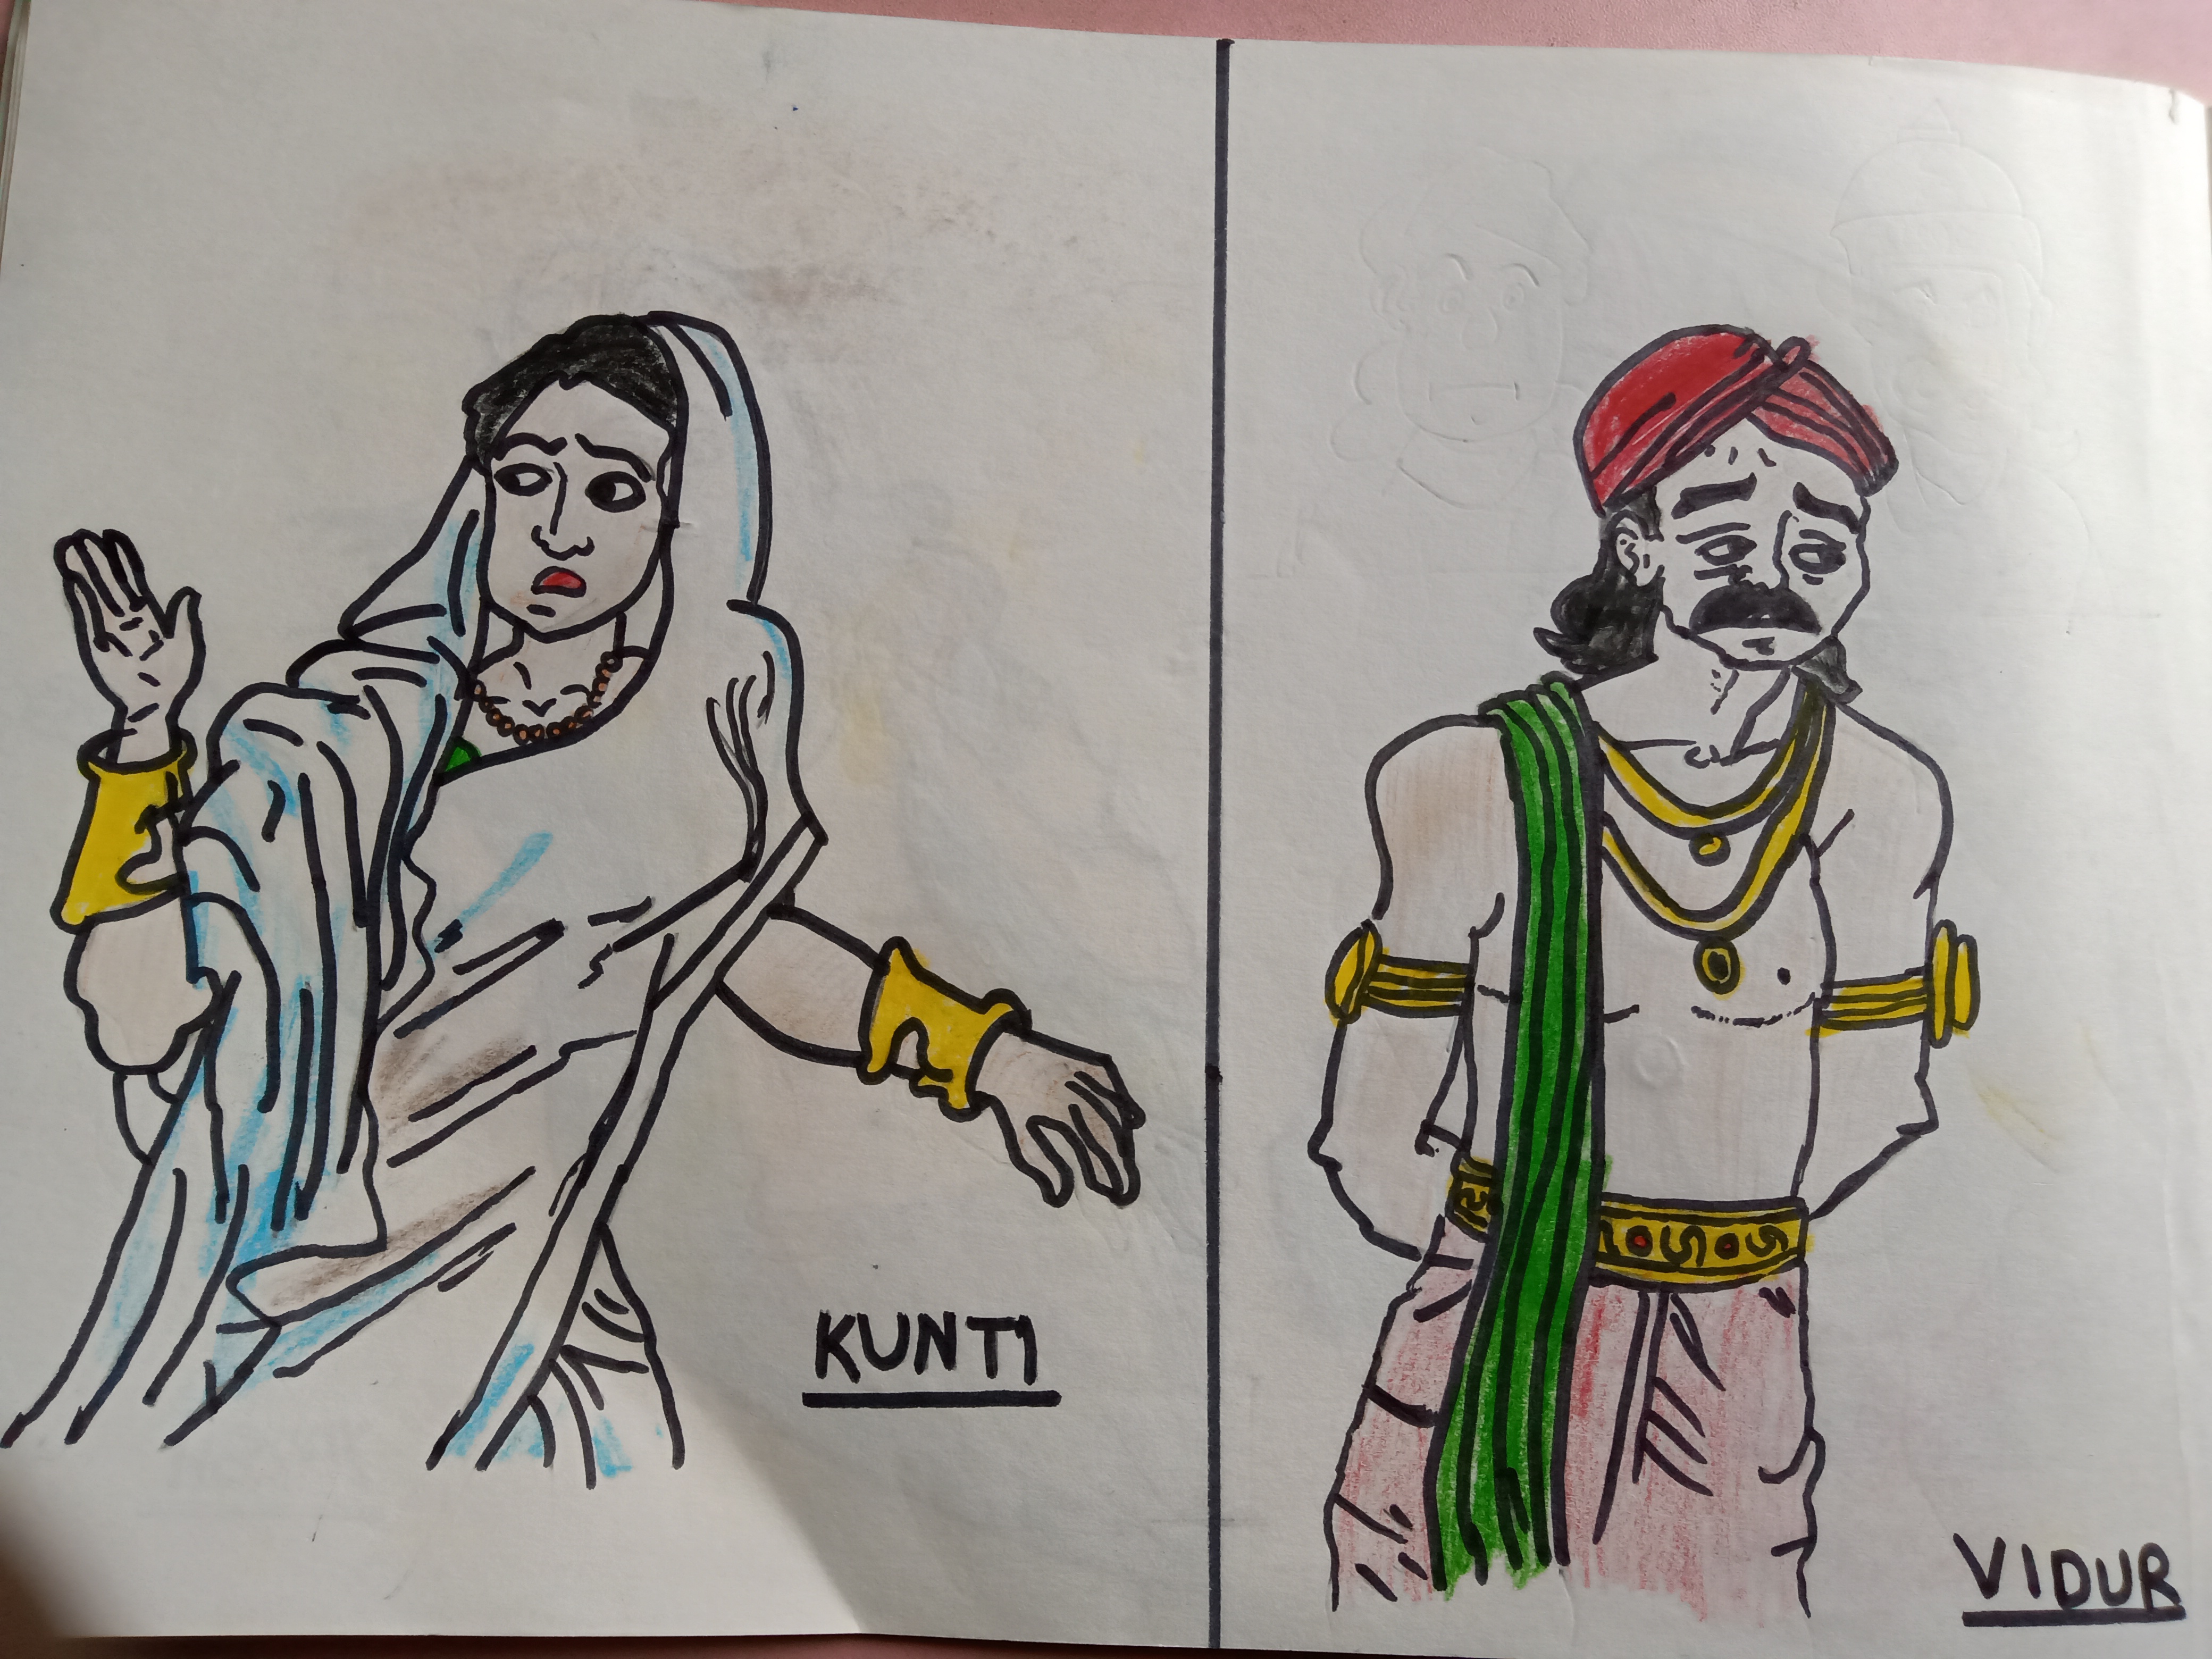 KUNTI
VIDUR